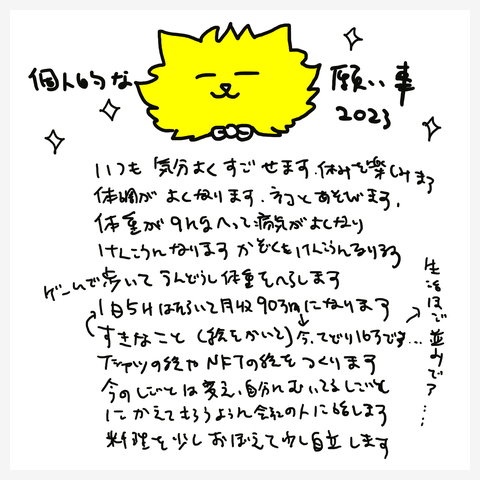 個人的な
願い事
2023
いつも 気分よく すごせます。休みを楽しみます
体調が よくなります。ネコとあそびます。
体重が9kgへって病気がよくなり
けんこうになります かぞくもけんこうになります
ゲームで歩いて うんどうし体重をへらします
1日5Hはたらいて月収90万円になります
すきなこと(絵をかいて)今、てどり16万です…
生活はで並みで？……
Tシャツの絵や NFTの絵を つくります
今のしごとは変え、自分にむいてるしごと
に かえてもらうように会社の人に話します
料理を少しおぼえて少し自立します